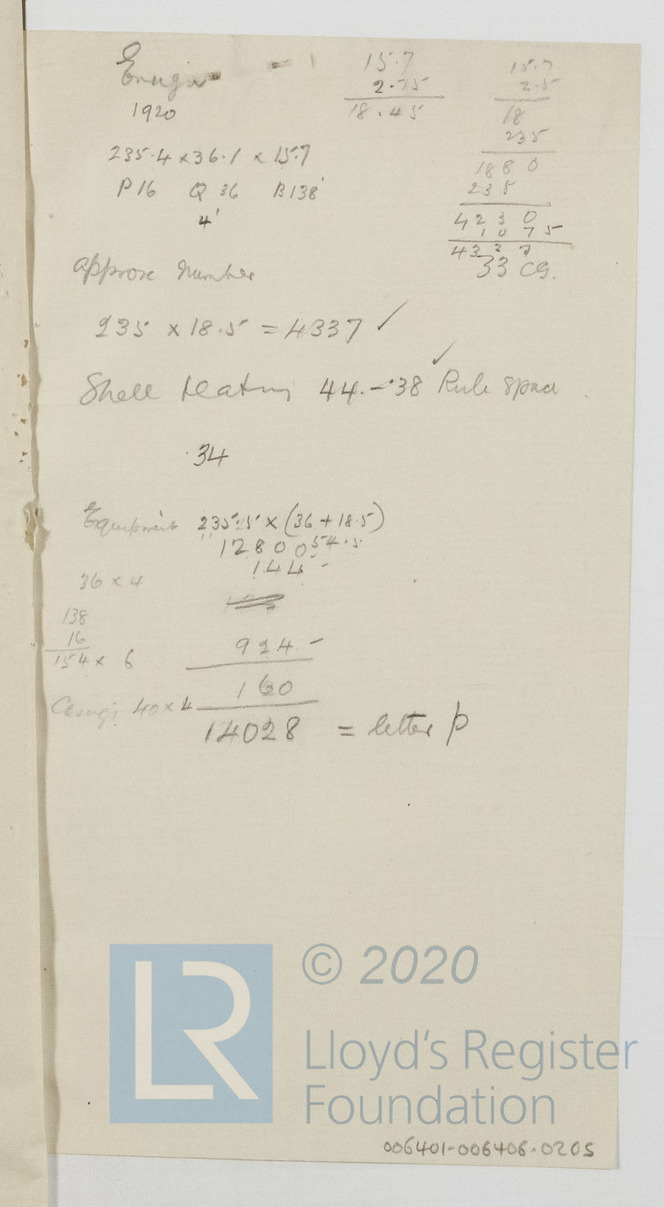 1920
15.7
2.75
18.45
15.7
2.5
18
235
1880
235
4230
1075
33 cg.
235.4 × 36.1 × 15.7
P 16 Q 36 B 138'
4'
approx number
235 × 18.5 = 4337 ✓
Shell 44. - .38 ✓ Rule space
.34
Equipment 235.5 × (36 + 18.5)
54.5
12800
36 × 4 144 -
138
16
154 × 6 924 -
Casings 40 × 4 160
14028 = letter p
LR
© 2020
Lloyd's Register
Foundation
006401-006406-0205